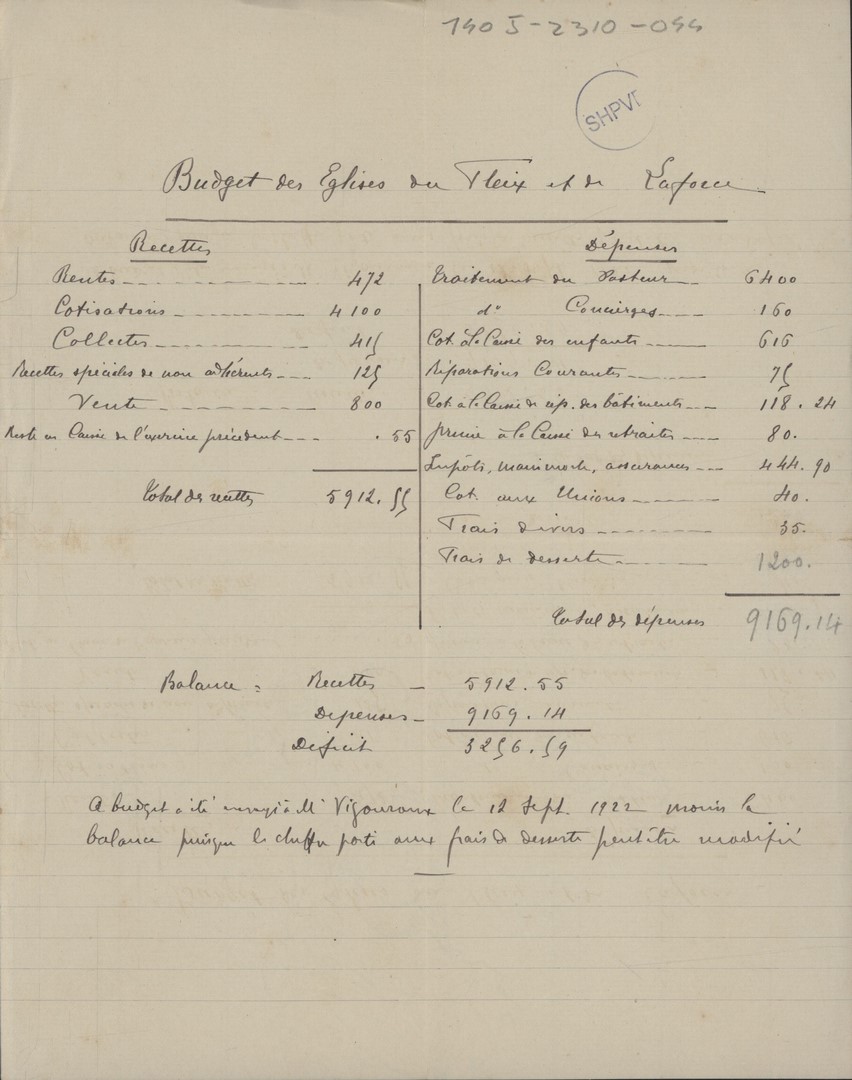 140 J-2310-044
SHPVD
Budget des Eglises du Fleix et de Laforce
Recettes
Rentes 472
Cotisations 4100
Collectes 415
Recettes spéciales de non adhérents 125
Vente 800
Reste en Caisse de l'exercice précédent .55
Total des recettes 5912.55
Dépenses
Traitement du Pasteur 6400
d° Concierges 160
Cot. à la Caisse des enfants 616
Réparations Courantes 75
Cot. à la Caisse de rép. des bâtiments 118.24
prime à la Caisse des retraites 80.
Impôts, mainmorte, assurances 444.90
Cot. aux Unions 40.
Frais divers 35.
Frais de desserte 1200.
Total des dépenses 9169.14
Balance = Recettes – 5912.55
Dépenses – 9169.14
Déficit 3256.59
Ce budget a été envoyé à Mr Vigouroux le 12 Sept. 1922 moins la
balance puisque le chiffre porté aux frais de desserte peut être modifié